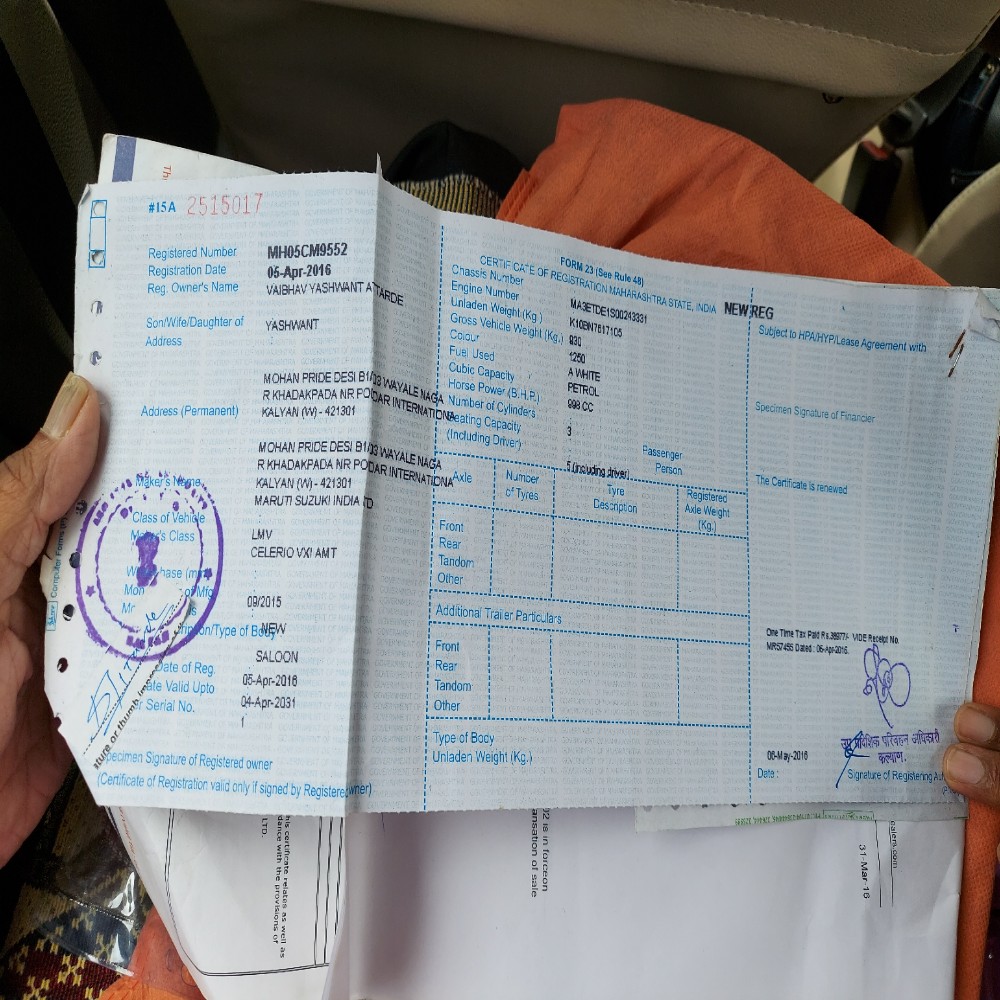 #15A 2515017
Registered Number MH05CM9552
Registration Date 05-Apr-2016
Reg. Owner's Name VAIBHAV YASHWANT ATTARDE
Son/Wife/Daughter of YASHWANT
Address
MOHAN PRIDE DESI B1/03 WAYALE NAGA
R KHADAKPADA NR PODAR INTERNATIONA
Address (Permanent) KALYAN (W) - 421301
MOHAN PRIDE DESI B1/03 WAYALE NAGA
R KHADAKPADA NR PODAR INTERNATIONA
KALYAN (W) - 421301
Maker's Name MARUTI SUZUKI INDIA
Class of Vehicle LMV
Maker's Class CELERIO VXI AMT
09/2015
NEW
/Type of Body SALOON
Date of Reg. 05-Apr-2016
ate Valid Upto 04-Apr-2031
r Serial No. 1
Specimen Signature of Registered owner
(Certificate of Registration valid only if signed by Registered owner)
ture or thumb
Computer Forms
FORM 23 (See Rule 48)
CERTIFICATE OF REGISTRATION MAHARASHTRA STATE, INDIA NEW REG
Chassis Number MA3ETDE1S00243331
Engine Number K10BN7617105
Unladen Weight (Kg.) 830
Gross Vehicle Weight (Kg.) 1250
Colour A WHITE
Fuel Used PETROL
Cubic Capacity 998 CC
Horse Power (B.H.P.)
Number of Cylinders 3
Seating Capacity
(Including Driver) 5 (including driver)
Passenger
Person
Axle Number of Tyres Tyre Description Registered Axle Weight (Kg.)
Front
Rear
Tandom
Other
Additional Trailer Particulars
Front
Rear
Tandom
Other
Type of Body
Unladen Weight (Kg.)
Subject to HPA/HYP/Lease Agreement with
Specimen Signature of Financier
The Certificate is renewed
One Time Tax Paid Rs.38977/- VIDE Receipt No.
MR57455 Dated : 06-Apr-2016.
उप प्रादेशिक परिवहन अधिकारी
कल्याण.
06-May-2016
Date : Signature of Registering Au
his certificate relates as well as
dance with the provisions of
LTD.
02 is in forceon
ansation of sale
31-Mar-16
ealers.com